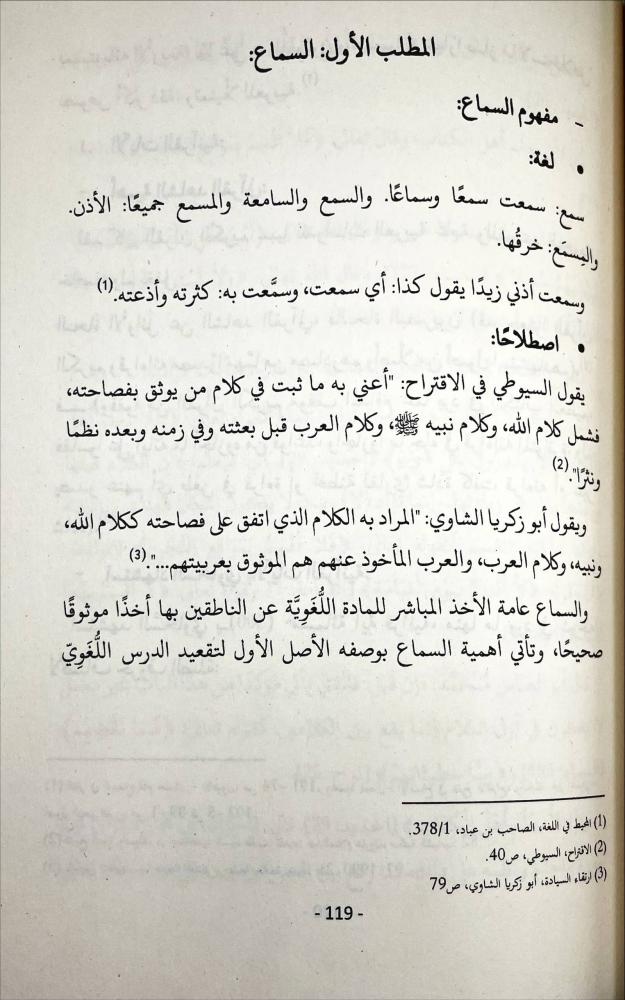 المطلب الأول: السماع:
- مفهوم السماع:
• لغة:
سمع: سمعت سمعًا وسماعًا. والسمع والسامعة والمسمع جميعًا: الأذن.
والمِسمَع: خرقُها.
وسمعت أذني زيدًا يقول كذا: أي سمعت، وسمَّعت به: كثرته وأذعته.(1)
• اصطلاحًا:
يقول السيوطي في الاقتراح: "أعني به ما ثبت في كلام من يوثق بفصاحته،
فشمل كلام الله، وكلام نبيه ﷺ، وكلام العرب قبل بعثته وفي زمنه وبعده نظمًا
ونثرًا".(2)
ويقول أبو زكريا الشاوي: "المراد به الكلام الذي اتفق على فصاحته ككلام الله،
ونبيه، وكلام العرب، والعرب المأخوذ عنهم هم الموثوق بعربيتهم...".(3)
والسماع عامة الأخذ المباشر للمادة اللُّغَوِيَّة عن الناطقين بها أخذًا موثوقًا
صحيحًا، وتأتي أهمية السماع بوصفه الأصل الأول لتقعيد الدرس اللُّغَوِيّ
(1) المحيط في اللغة، الصاحب بن عباد، 378/1.
(2) الاقتراح، السيوطي، ص40.
(3) ارتقاء السيادة، أبو زكريا الشاوي، ص79
- 119 -